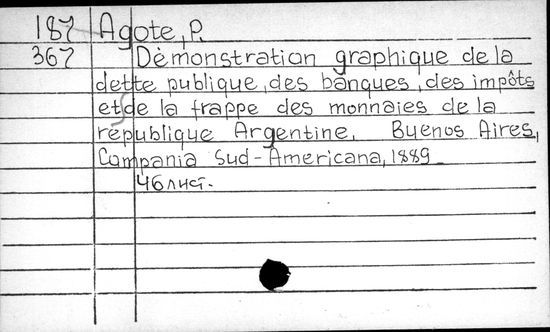 187 Agote, P.
367 Dèmonstration graphique de la
dette publique, des banques, des impôts
et de la frappe des monnaies de la
république Argentine. Buenos Aires,
Compania Sud-Americana, 1889
46 лист.